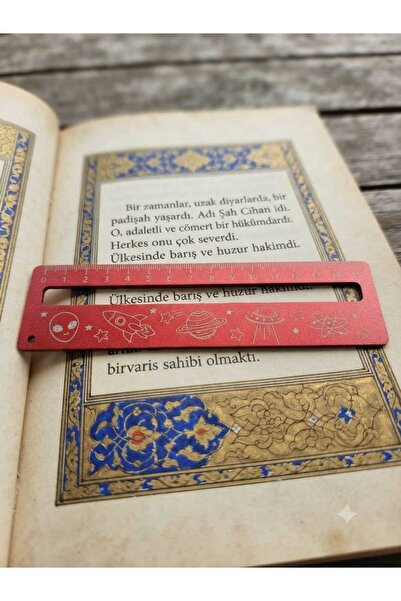 Bir zamanlar, uzak diyarlarda, bir
padişah yaşardı. Adı Şah Cihan idi.
O, adaletli ve cömert bir hükümdardı.
Herkes onu çok severdi.
Ülkesinde barış ve huzur hakimdi.
0 1 2 3 4 5 6 7 8 9 10 11 12
Ülkesinde barış ve huzur hakimdi.
birvaris sahibi olmaktı.